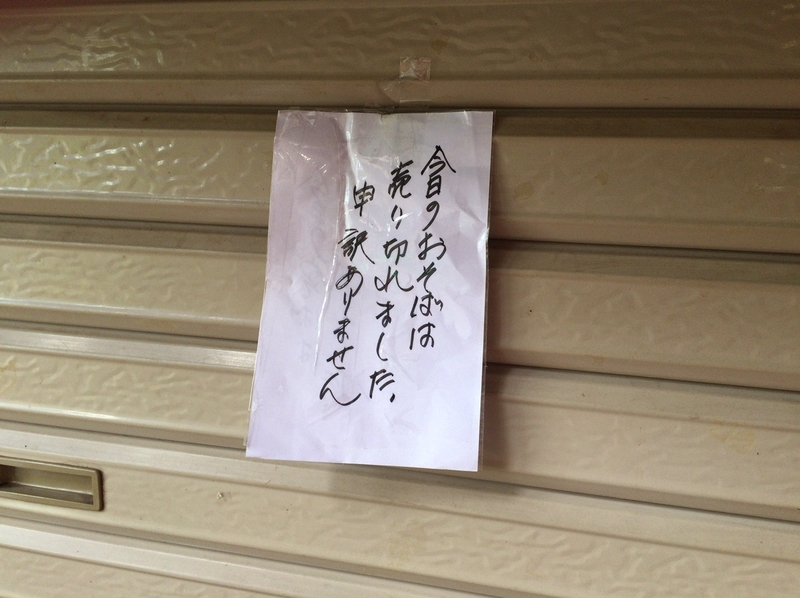 今日のおそばは
売り切れました.
申訳ありません